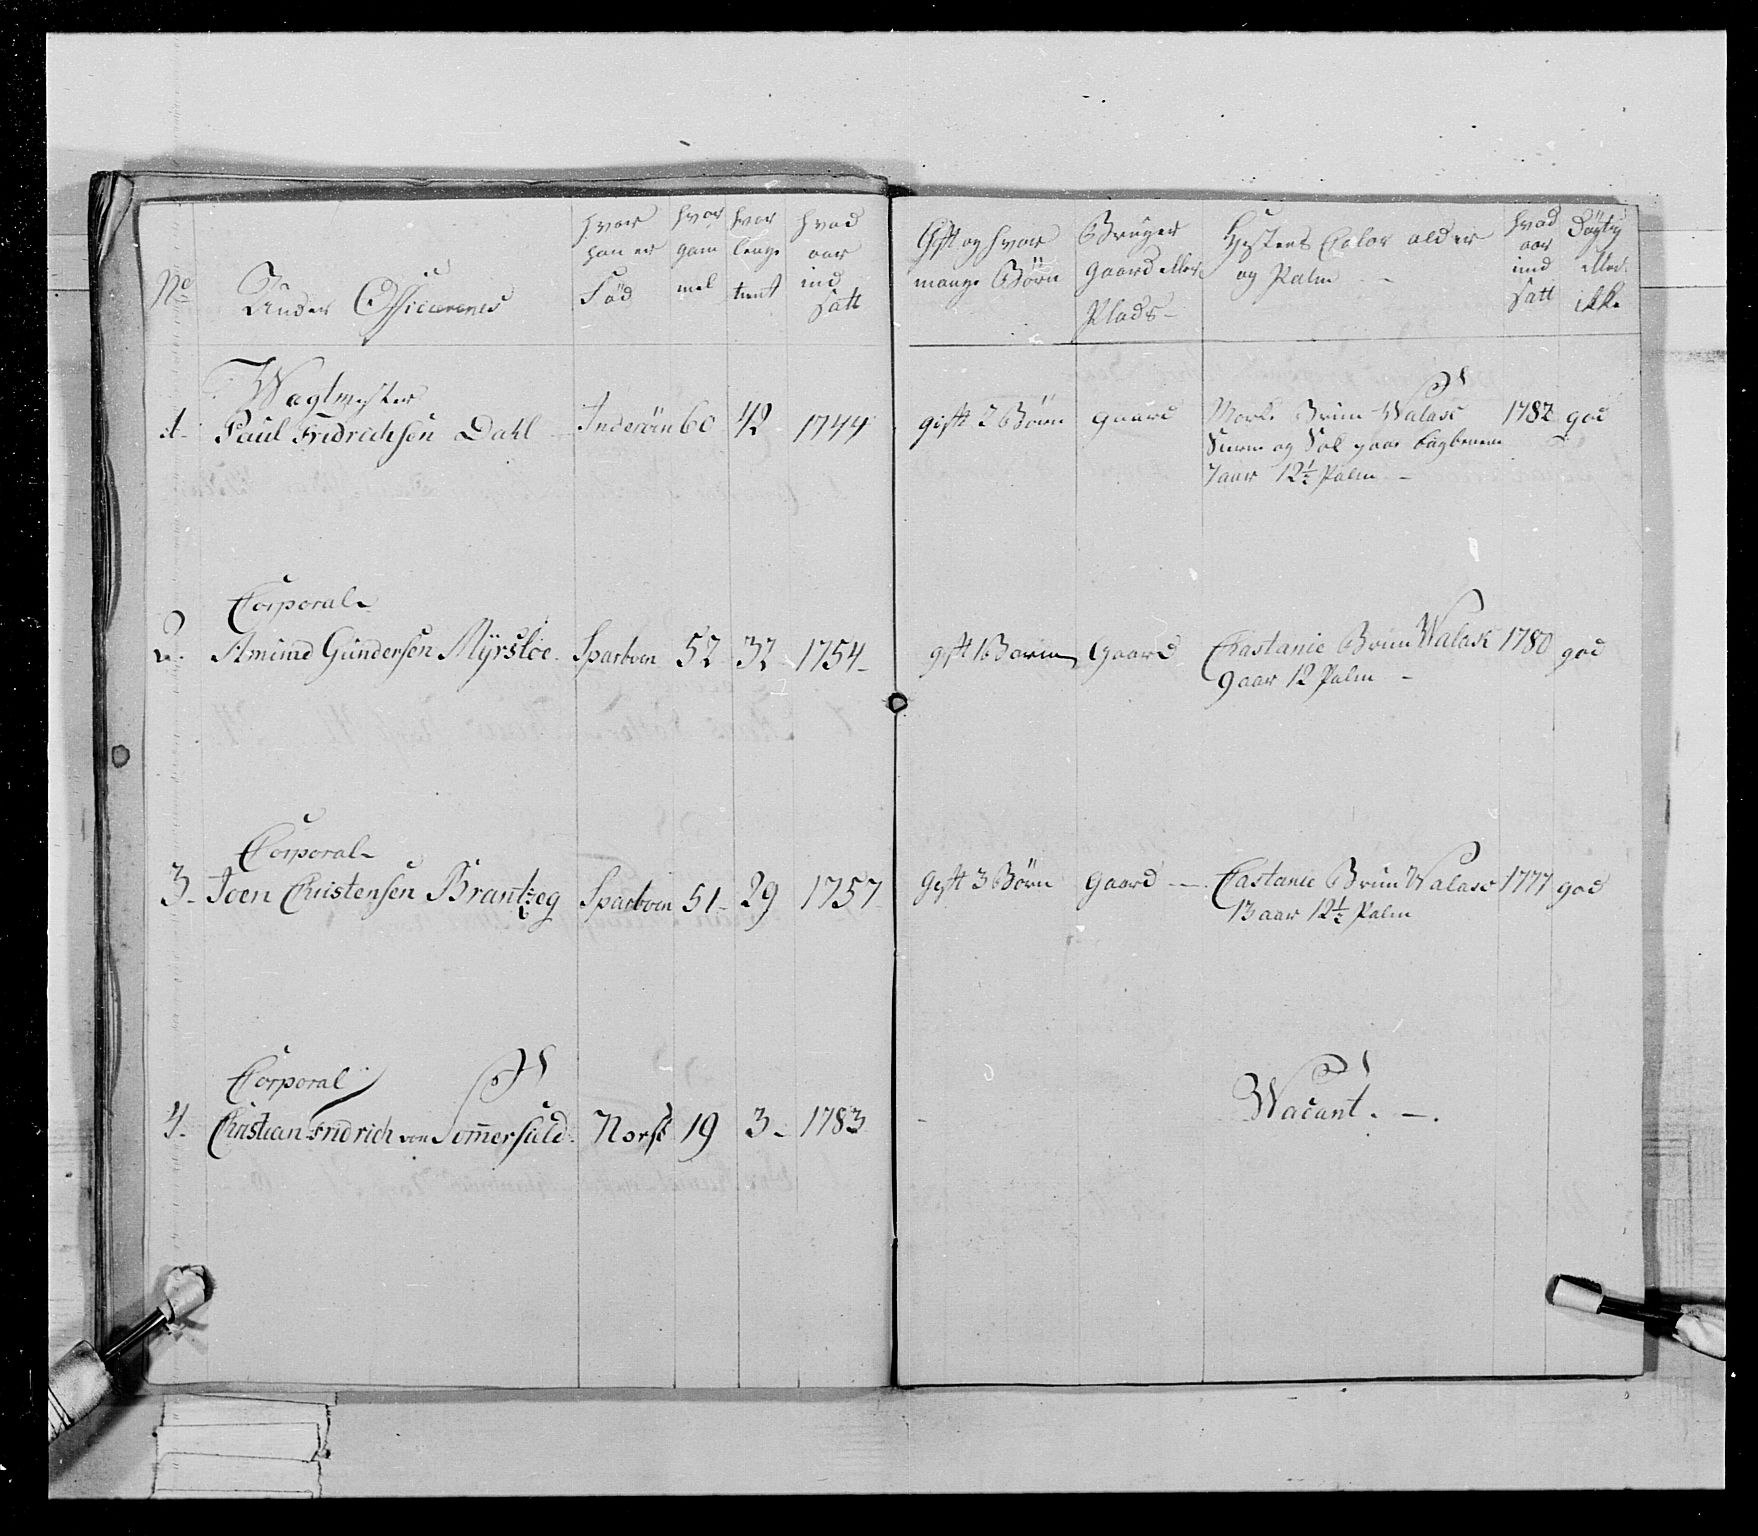 No
Under Officerernes
hvor
han er
Fød
hvor
gam
mel
hvor
lenge
tient
hvad
aar
ind
satt
Gift og hvor
mange Börn
Bruger
gaard eller
Plads -
Hestens Color alder
og Palm -
hvad
aar
ind
satt
Dögtig
eller
ikke
Wagtmester
1. Paul Fridrichsen Dahl Inderöin 60 42 1744 gift 2 Börn gaard Mork Brun Walask 1782 god
Sierne og bagbenene
7 aar 12½ Palm -
Corporal
2. Amund Gundersen Myrsloe Sparboen 52 32 1754 gift 1 Barn gaard Castanie Brun Walask 1780 god
9 aar 12 Palm -
Corporal
3. Joen Christensen Brantzeg Sparboen 51 29 1757 gift 3 Börn gaard - Castanie Brun Walask 1777 god
13 aar 12½ Palm
Corporal
4. Christian Fridrich von Somersfeld Norsk 19 3 1783 - Wacant. -